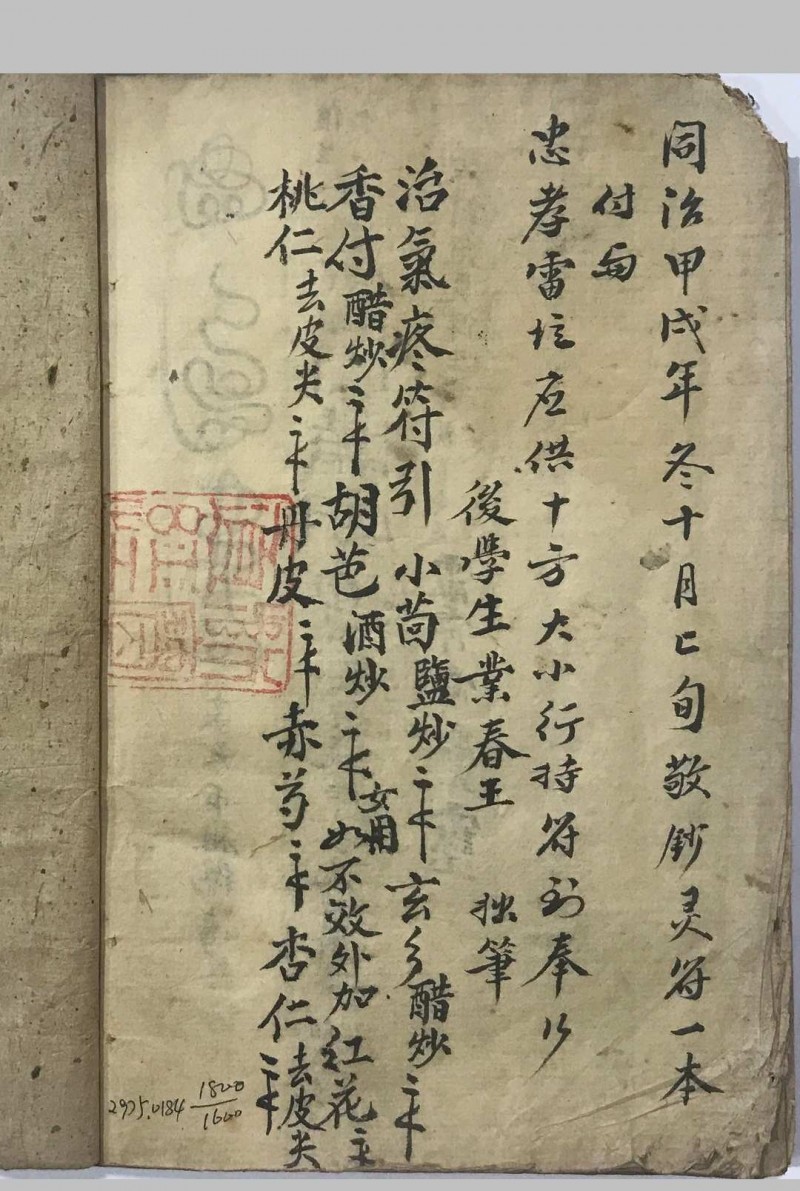 同治甲戌年冬十月上旬敬鈔灵符一本
付与
忠孝雷坛应供十方大小行持符到奉行
後學生業春王 拙筆
治氣疼符引 小茴鹽炒二牛 玄乡醋炒二牛
香付醋炒二牛 胡芭酒炒二牛 女用如不效外加红花
桃仁去皮尖二牛 丹皮二牛 赤芍二牛 杏仁去皮尖二牛
2975.0184 1800/1600